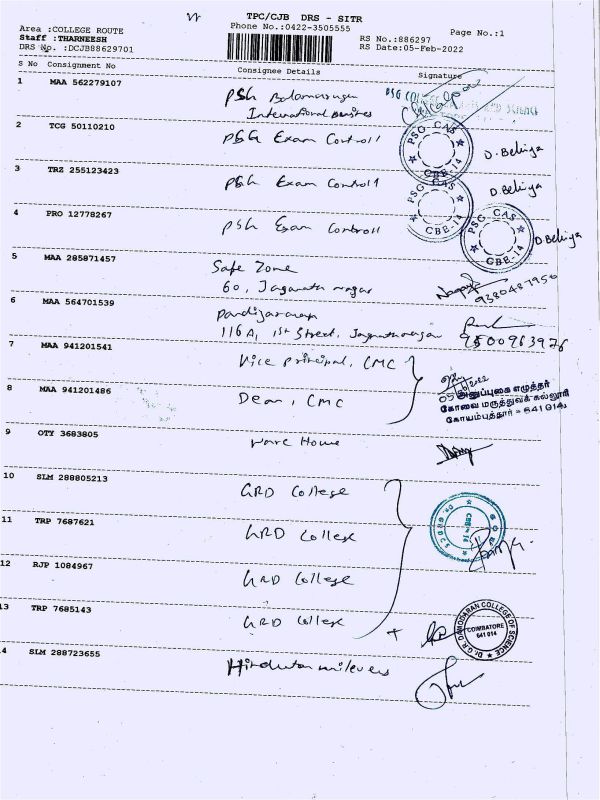 TPC/CJB DRS - SITR
Area :COLLEGE ROUTE
Phone No.:0422-3505555
Staff : THARNEESH
RS No.:886297
Page No.:1
DRS No. :DCJB88629701
RS Date:05-Feb-2022
S No Consignment No Consignee Details Signature
1 MAA 562279107 PSG
International Business
2 TCG 50110210 PSG Exam Controll
PSG CAS CBE-14
3 TRZ 255123423 PSG Exam Controll
PSG CAS CBE-14
4 PRO 12778267 PSG Exam Controll
PSG CAS CBE-14
5 MAA 285871457 Safe Zone
60, Jaganath nagar
9380487956
6 MAA 564701539
116A, 1st Street, Jaganathnagar 9500963976
7 MAA 941201541 Vice principal, CMC
8 MAA 941201486 Dean, CMC
அனுப்புகை எழுத்தர்
கோவை மருத்துவக் கல்லூரி
கோயம்புத்தூர் - 641 014.
9 OTY 3683805 ware House
10 SLM 288805213 GRD College
11 TRP 7687621 GRD College
12 RJP 1084967 GRD College
13 TRP 7685143 GRD College
Dr. G.R. DAMODARAN COLLEGE OF SCIENCE
COIMBATORE
641 014
14 SLM 288723655 Hindustan unilevers